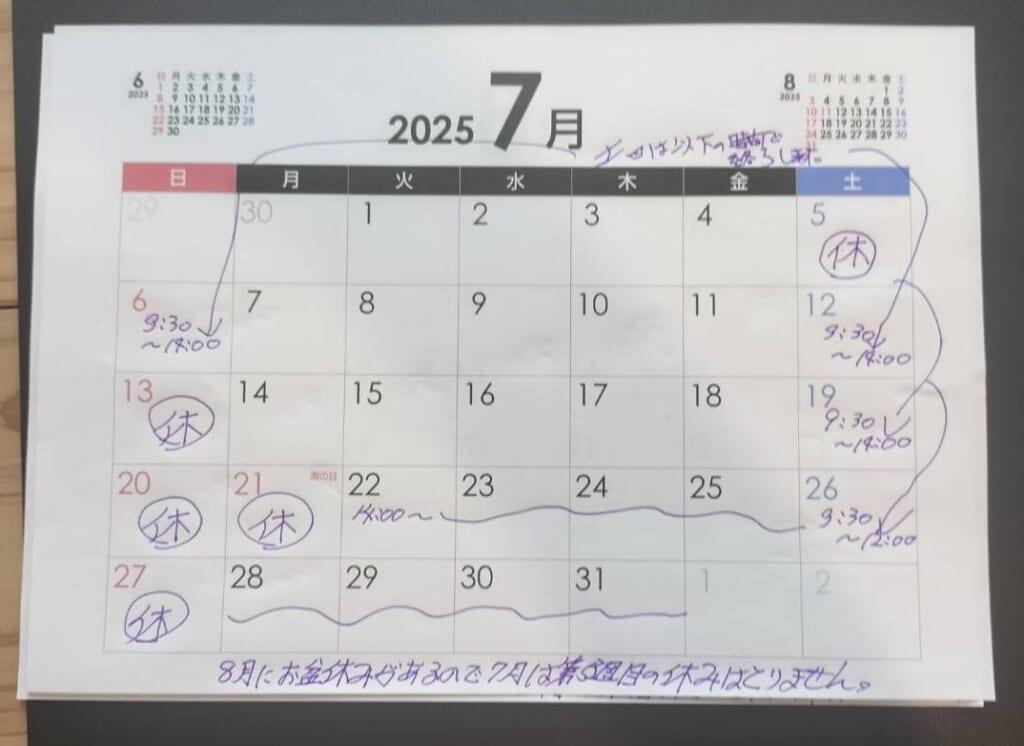 6
2025
日 月 火 水 木 金 土
1 2 3 4 5 6 7
8 9 10 11 12 13 14
15 16 17 18 19 20 21
22 23 24 25 26 27 28
29 30
2025 7月
8
2025
日 月 火 水 木 金 土
1 2
3 4 5 6 7 8 9
10 11 12 13 14 15 16
17 18 19 20 21 22 23
24 25 26 27 28 29 30
土日は以下の時間で
終ろします。
日 月 火 水 木 金 土
29 30 1 2 3 4 5
休
6 7 8 9 10 11 12
9:30 9:30
〜14:00 〜14:00
13 14 15 16 17 18 19
休 9:30
〜14:00
20 21 海の日 22 23 24 25 26
休 休 14:00〜 9:30
〜12:00
27 28 29 30 31 1 2
休
8月にお盆休みがあるので7月は第5週目の休みはとりません。